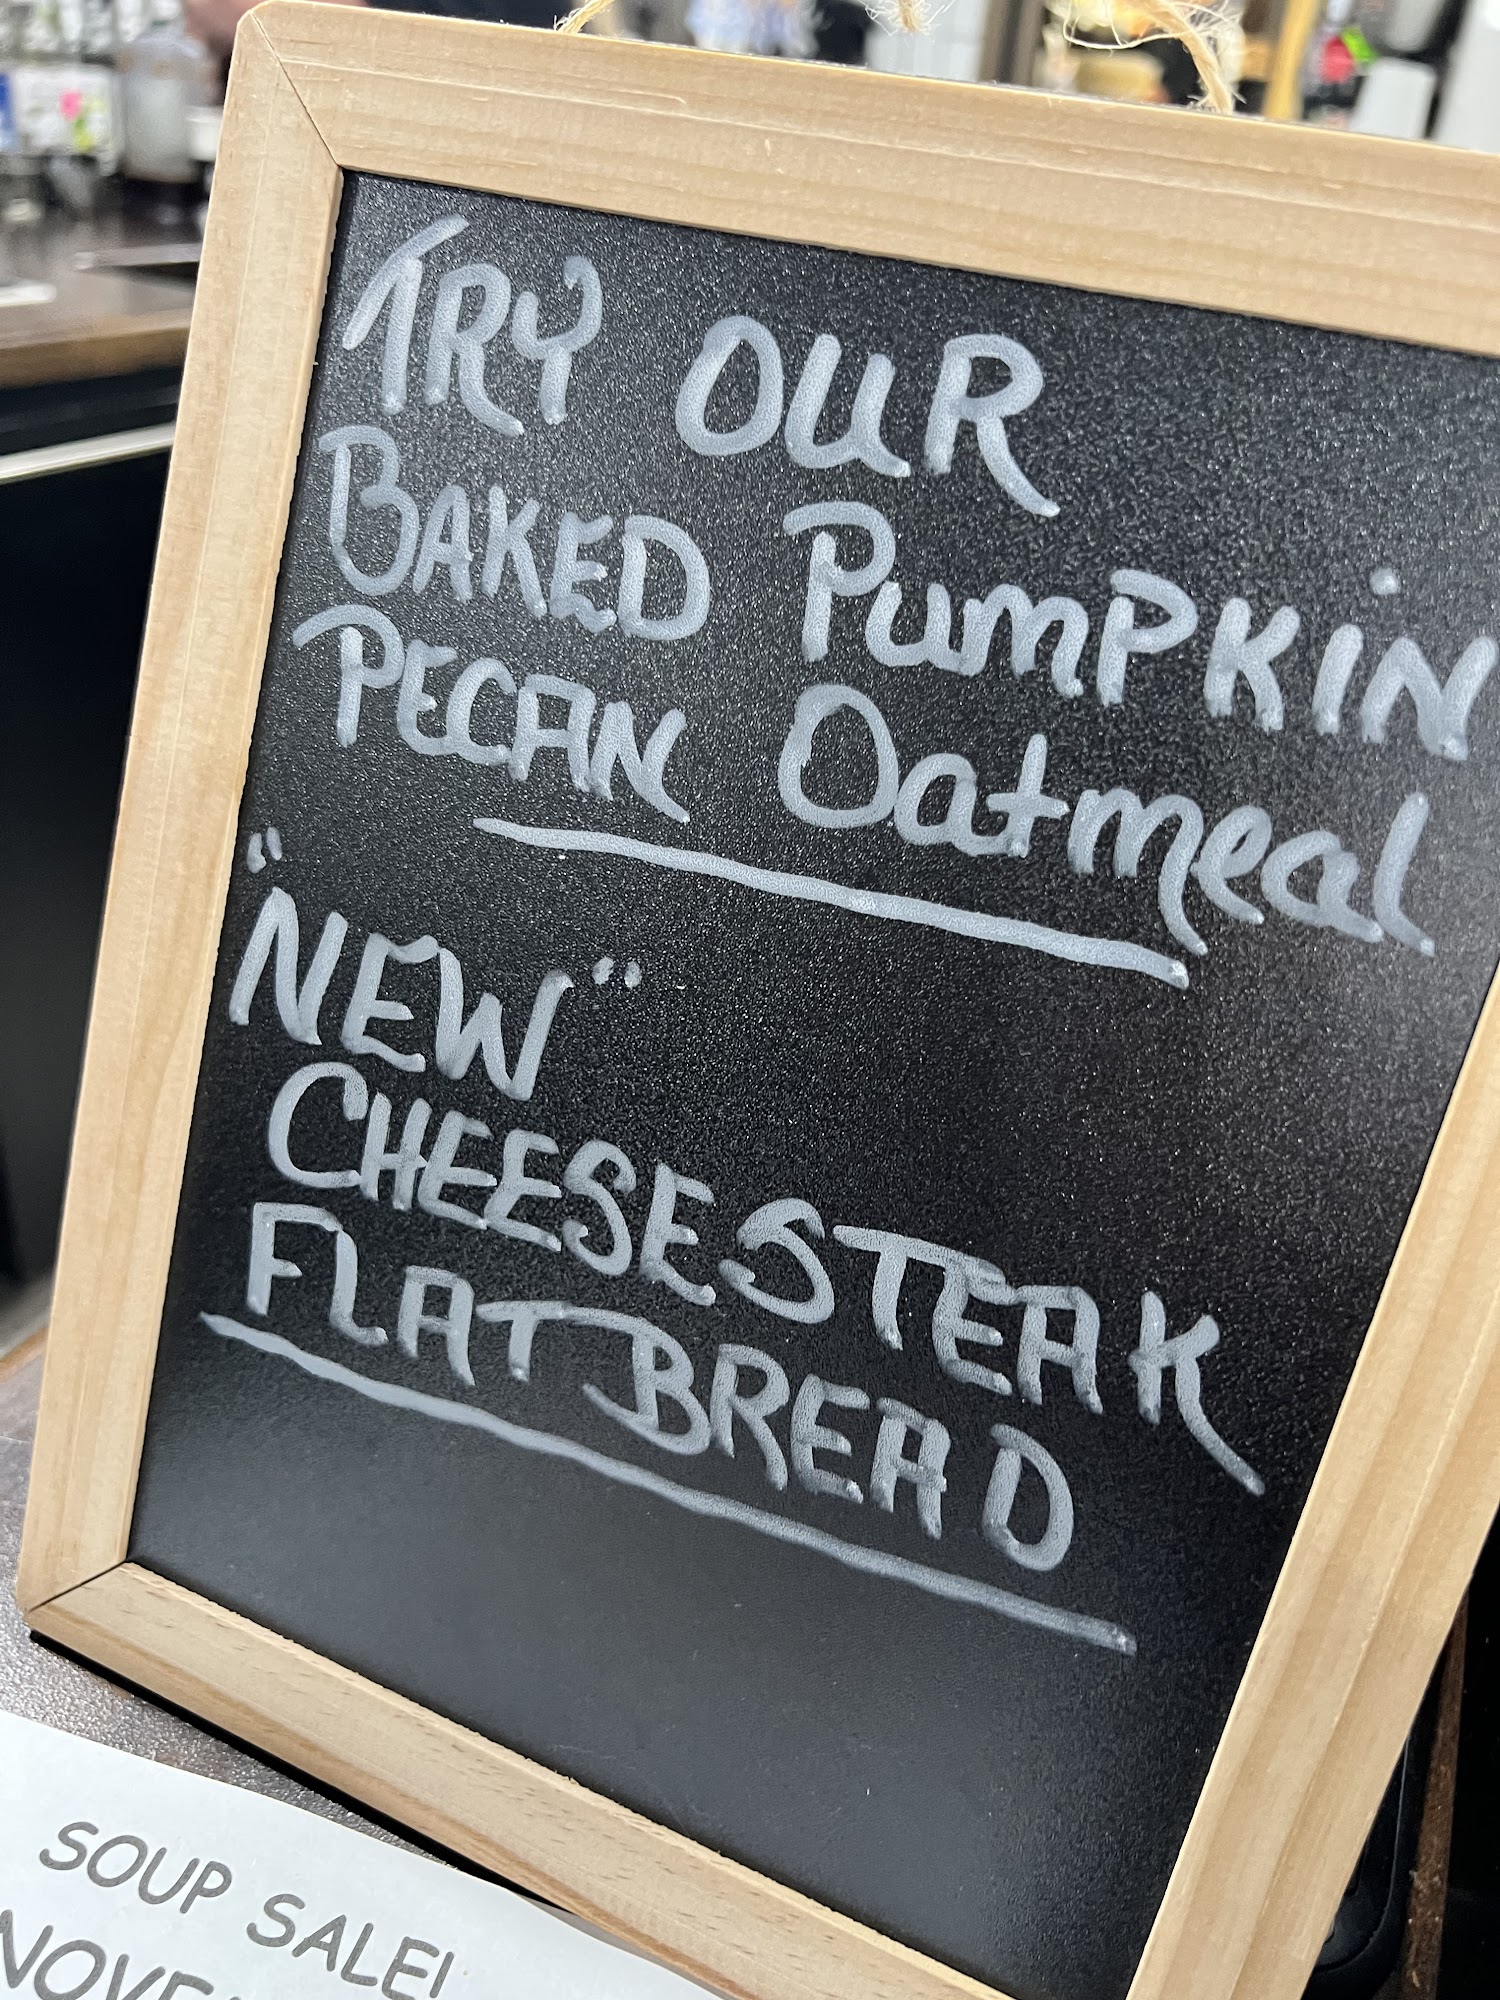 TRY OUR
BAKED PUMPKIN
PECAN Oatmeal
"NEW"
CHEESESTEAK
FLATBREAD
SOUP SALE!